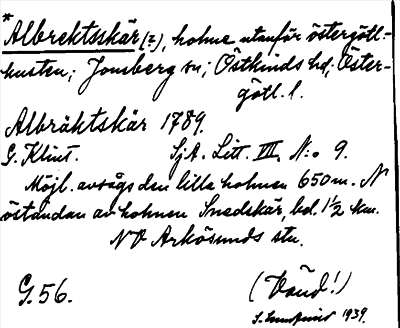 *Albrektsskär (?), holme utanför östergötl.-
kusten; Jonsberg sn; Östkinds hd; Öster-
götl. l.
Albräktskär 1789.
G. Klint. SjA. Litt. III. N:o 9.
Möjl. avsågs den lilla holmen 650 m. N
östandan av holmen Snedskär, bel. 1 1/2 km.
NO Arkösunds stn.
G. 56. (Vänd!)
1939.